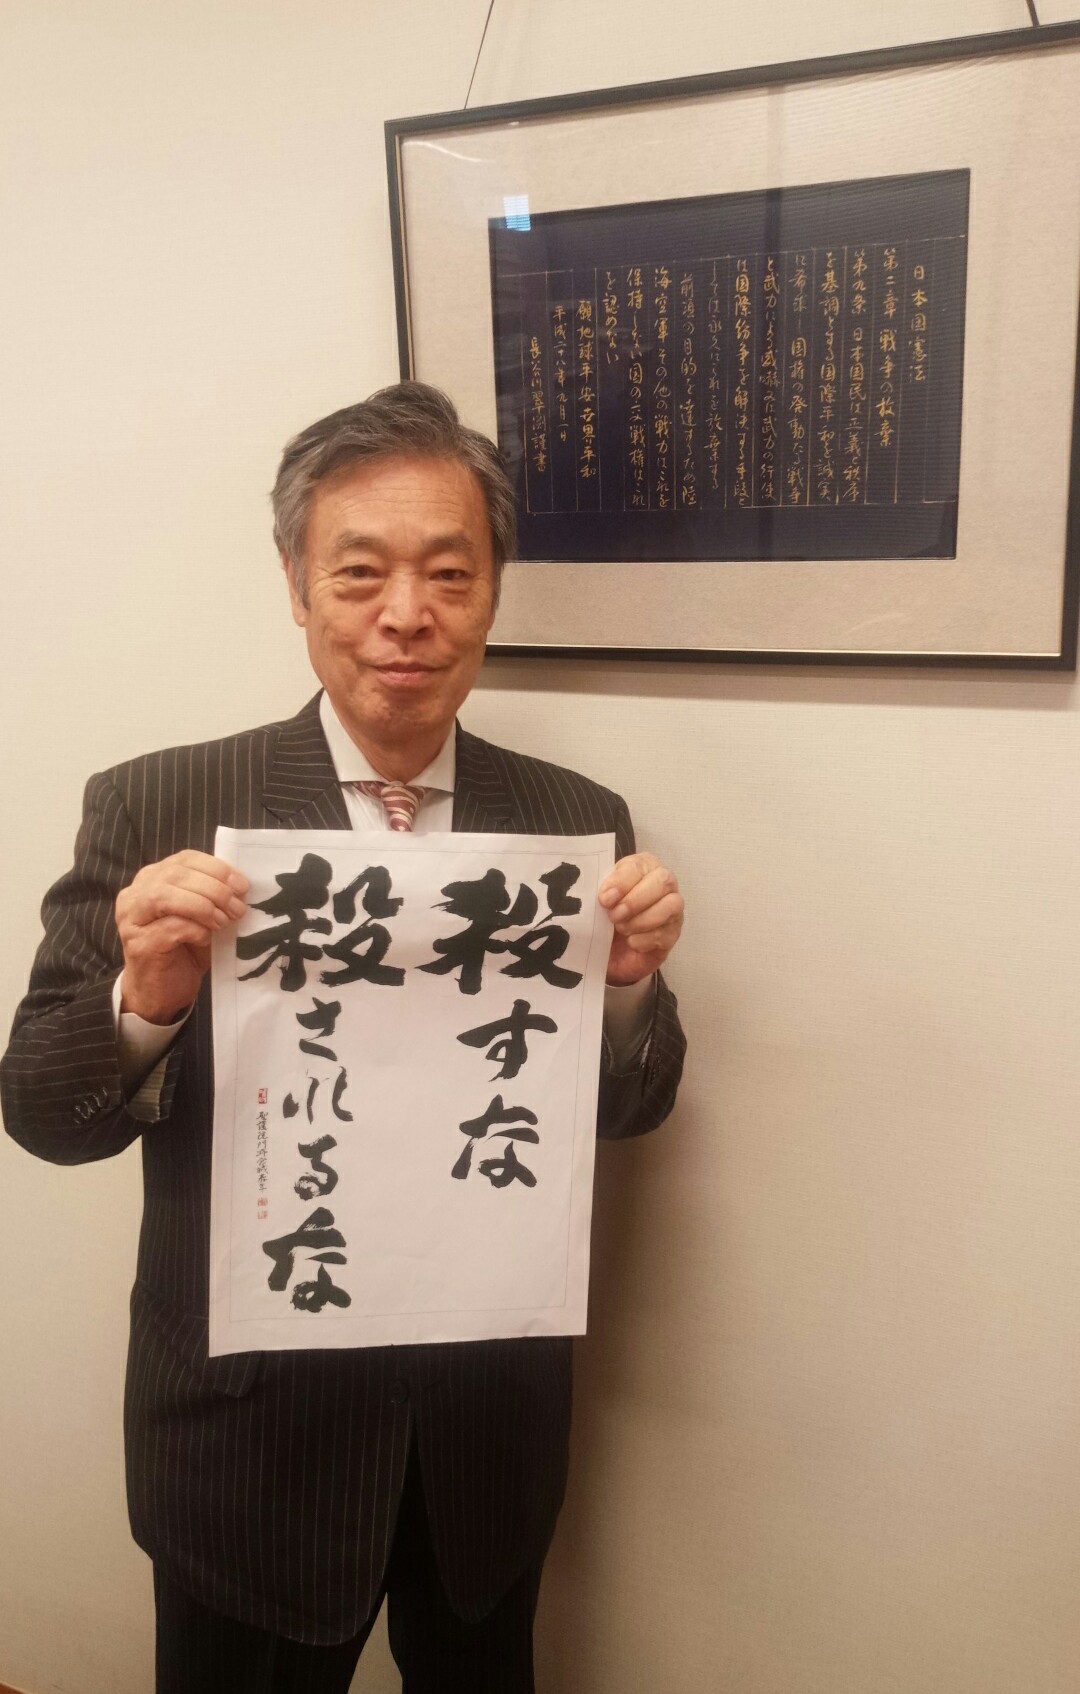 日本国憲法
第二章 戦争の放棄
第九条 日本国民は正義と秩序
を基調とする国際平和を誠実
に希求し国権の発動たる戦争
と武力による威嚇又は武力の行使
は国際紛争を解決する手段と
しては永久にこれを放棄する
前項の目的を達するため陸
海空軍その他の戦力はこれを
保持しない国の交戦権はこれ
を認めない
願地球平安世界平和
平成二十八年九月一日
長谷川翠 謹書
殺すな
殺されるな